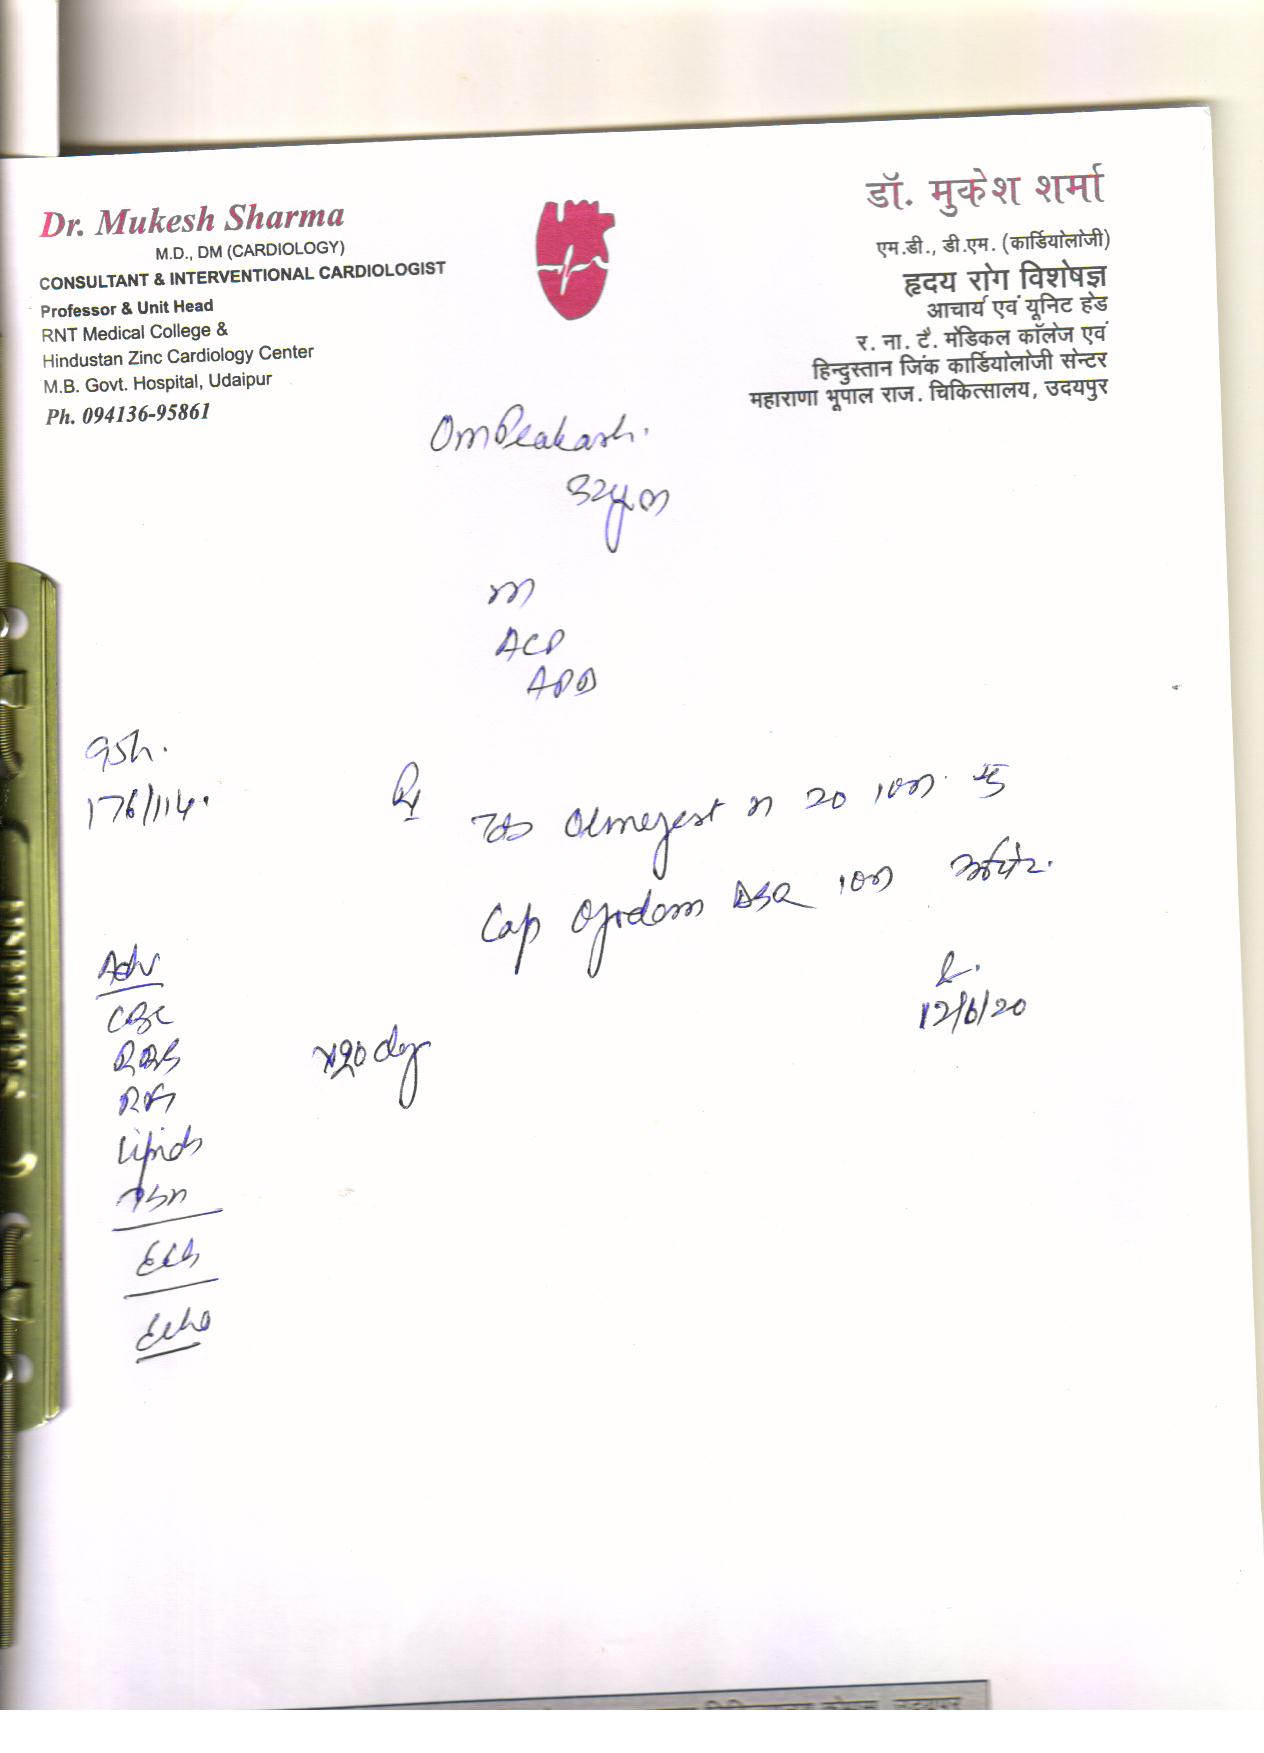 Dr. Mukesh Sharma
M.D., DM (CARDIOLOGY)
CONSULTANT & INTERVENTIONAL CARDIOLOGIST
Professor & Unit Head
RNT Medical College &
Hindustan Zinc Cardiology Center
M.B. Govt. Hospital, Udaipur
Ph. 094136-95861
डॉ. मुकेश शर्मा
एम.डी., डी.एम. (कार्डियोलॉजी)
हृदय रोग विशेषज्ञ
आचार्य एवं यूनिट हेड
र. ना. टै. मेडिकल कॉलेज एवं
हिन्दुस्तान जिंक कार्डियोलॉजी सेन्टर
महाराणा भूपाल राज. चिकित्सालय, उदयपुर
Om Prakash.
32y m
ACP
176/114.
Rx
Tab Olmezest 20
Cap DSR
12/6/20
Adv
CBC
RBS
RFT
Lipids
x20 day
TSH
ECG
Echo